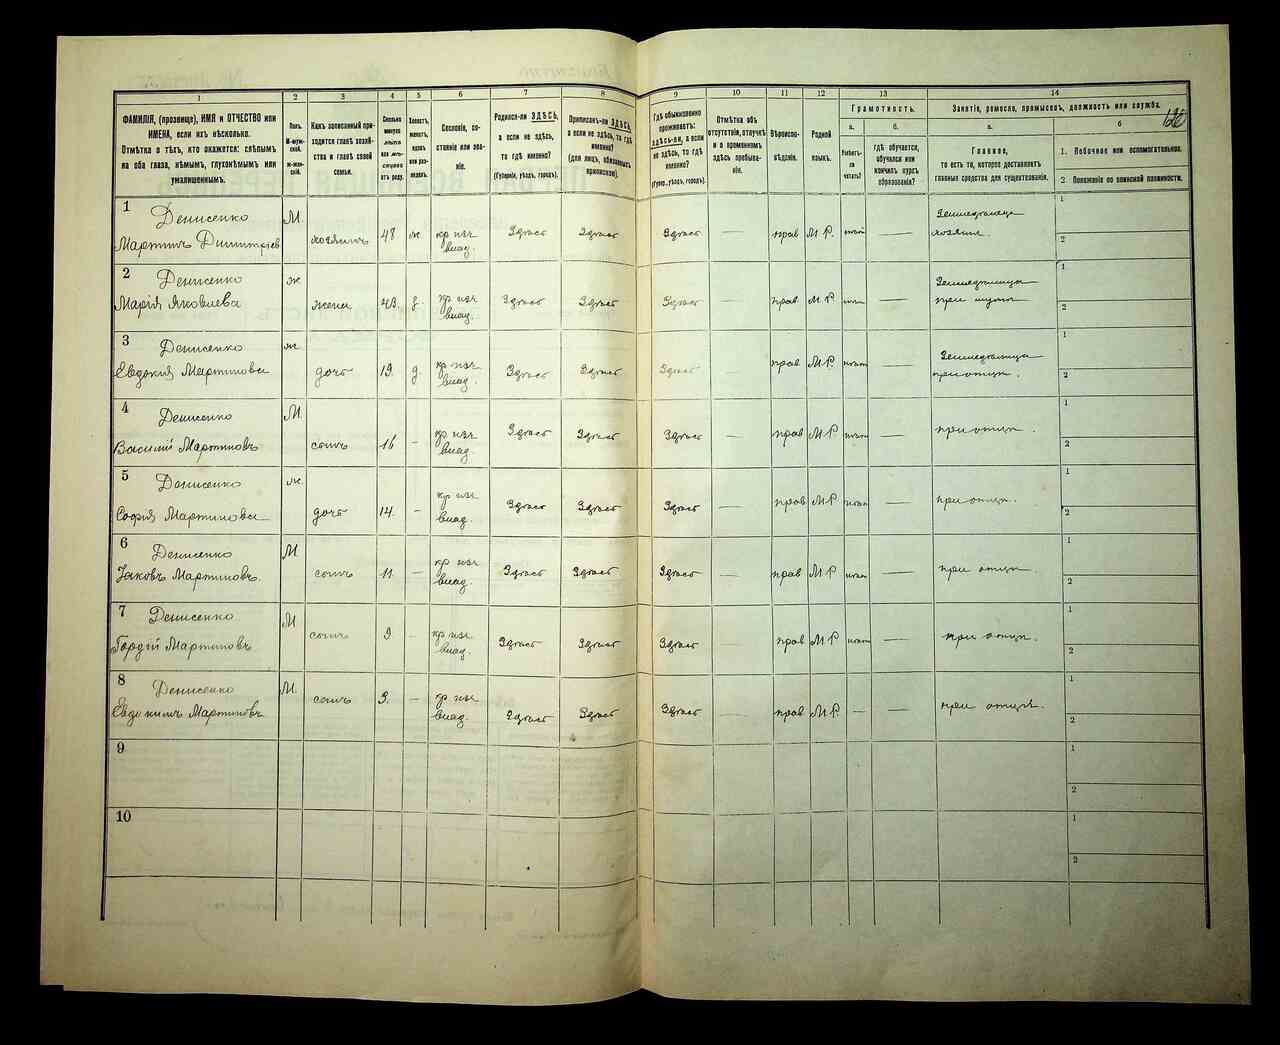 1
2
3
4
5
6
7
8
9
10
11
12
13
14
ФАМИЛІЯ, (прозвище), ИМЯ и ОТЧЕСТВО или
ИМЕНА, если ихъ нѣсколько.
Отмѣтка о тѣхъ, кто окажется: слѣпымъ
на оба глаза, нѣмымъ, глухонѣмымъ или
умалишеннымъ.
Полъ.
М-муж-
ской.
ж-жен-
скій.
Какъ записанный при-
ходится главѣ хозяй-
ства и главѣ своей
семьи.
Сколько
минуло
лѣтъ
или мѣс-
яцевъ
отъ роду.
Холостъ,
женатъ,
вдовъ
или раз-
веденъ.
Сословіе, со-
стояніе или зва-
ніе.
Родился-ли ЗДѢСЬ,
а если не здѣсь,
то гдѣ именно?
(Губернія, уѣздъ, городъ).
Приписанъ-ли ЗДѢСЬ,
а если не здѣсь, то гдѣ
именно?
(для лицъ, обязанныхъ
припиской).
Гдѣ обыкновенно
проживаетъ:
здѣсь-ли, а если
не здѣсь, то гдѣ
именно?
(Губер., уѣздъ, городъ).
Отмѣтка объ
отсутствіи, отлучкѣ
и о временномъ
здѣсь пребыва-
ніи.
Вѣроиспо-
вѣданіе.
Родной
языкъ.
Грамотность.
а.
б.
Умѣетъ-
ли
читать?
гдѣ обучается,
обучался или
кончилъ курсъ
образованія?
Занятіе, ремесло, промыселъ, должность или служба.
126
а.
б
Главное,
то есть то, которое доставляетъ
главныя средства для существованія.
1. Побочное или вспомогательное.
2 Положеніе по воинской повинности.
1 Денисенко М.
Мартинъ Димитріев хозяинъ 48 ж кр изъ Здѣсь Здѣсь Здѣсь — прав М Р. —
влад.
Земледѣлецъ
хозяинъ.
1
2
2 Денисенко ж
Марія Яковлева жена 43. кр изъ Здѣсь Здѣсь Здѣсь — прав М Р. —
влад.
Земледѣлица
при мужѣ
1
2
3 Денисенко ж.
Евдокия Мартинова дочь 19. д. кр изъ Здѣсь Здѣсь Здѣсь — прав М Р. —
влад.
Земледѣлица
при отцѣ.
1
2
4 Денисенко М.
Василий Мартиновъ сынъ 16 - кр изъ Здѣсь Здѣсь Здѣсь — прав М Р. — при отцѣ.
влад.
1
2
5 Денисенко ж.
Софія Мартинова дочь 14. - кр изъ Здѣсь Здѣсь Здѣсь — прав М Р — при отцѣ.
влад.
1
2
6 Денисенко М
Яковъ Мартиновъ. сынъ 11. - кр изъ Здѣсь Здѣсь Здѣсь — прав М Р — при отцѣ
влад.
1
2
7 Денисенко М
Гордій Мартиновъ сынъ 9. - кр изъ Здѣсь Здѣсь Здѣсь — прав М Р. — при отцѣ.
влад.
1
2
8 Денисенко М.
Евдокимъ Мартиновъ сынъ 3. - кр изъ Здѣсь Здѣсь Здѣсь — прав М Р. — — при отцѣ.
влад.
1
2
9
1
2
10
1
2